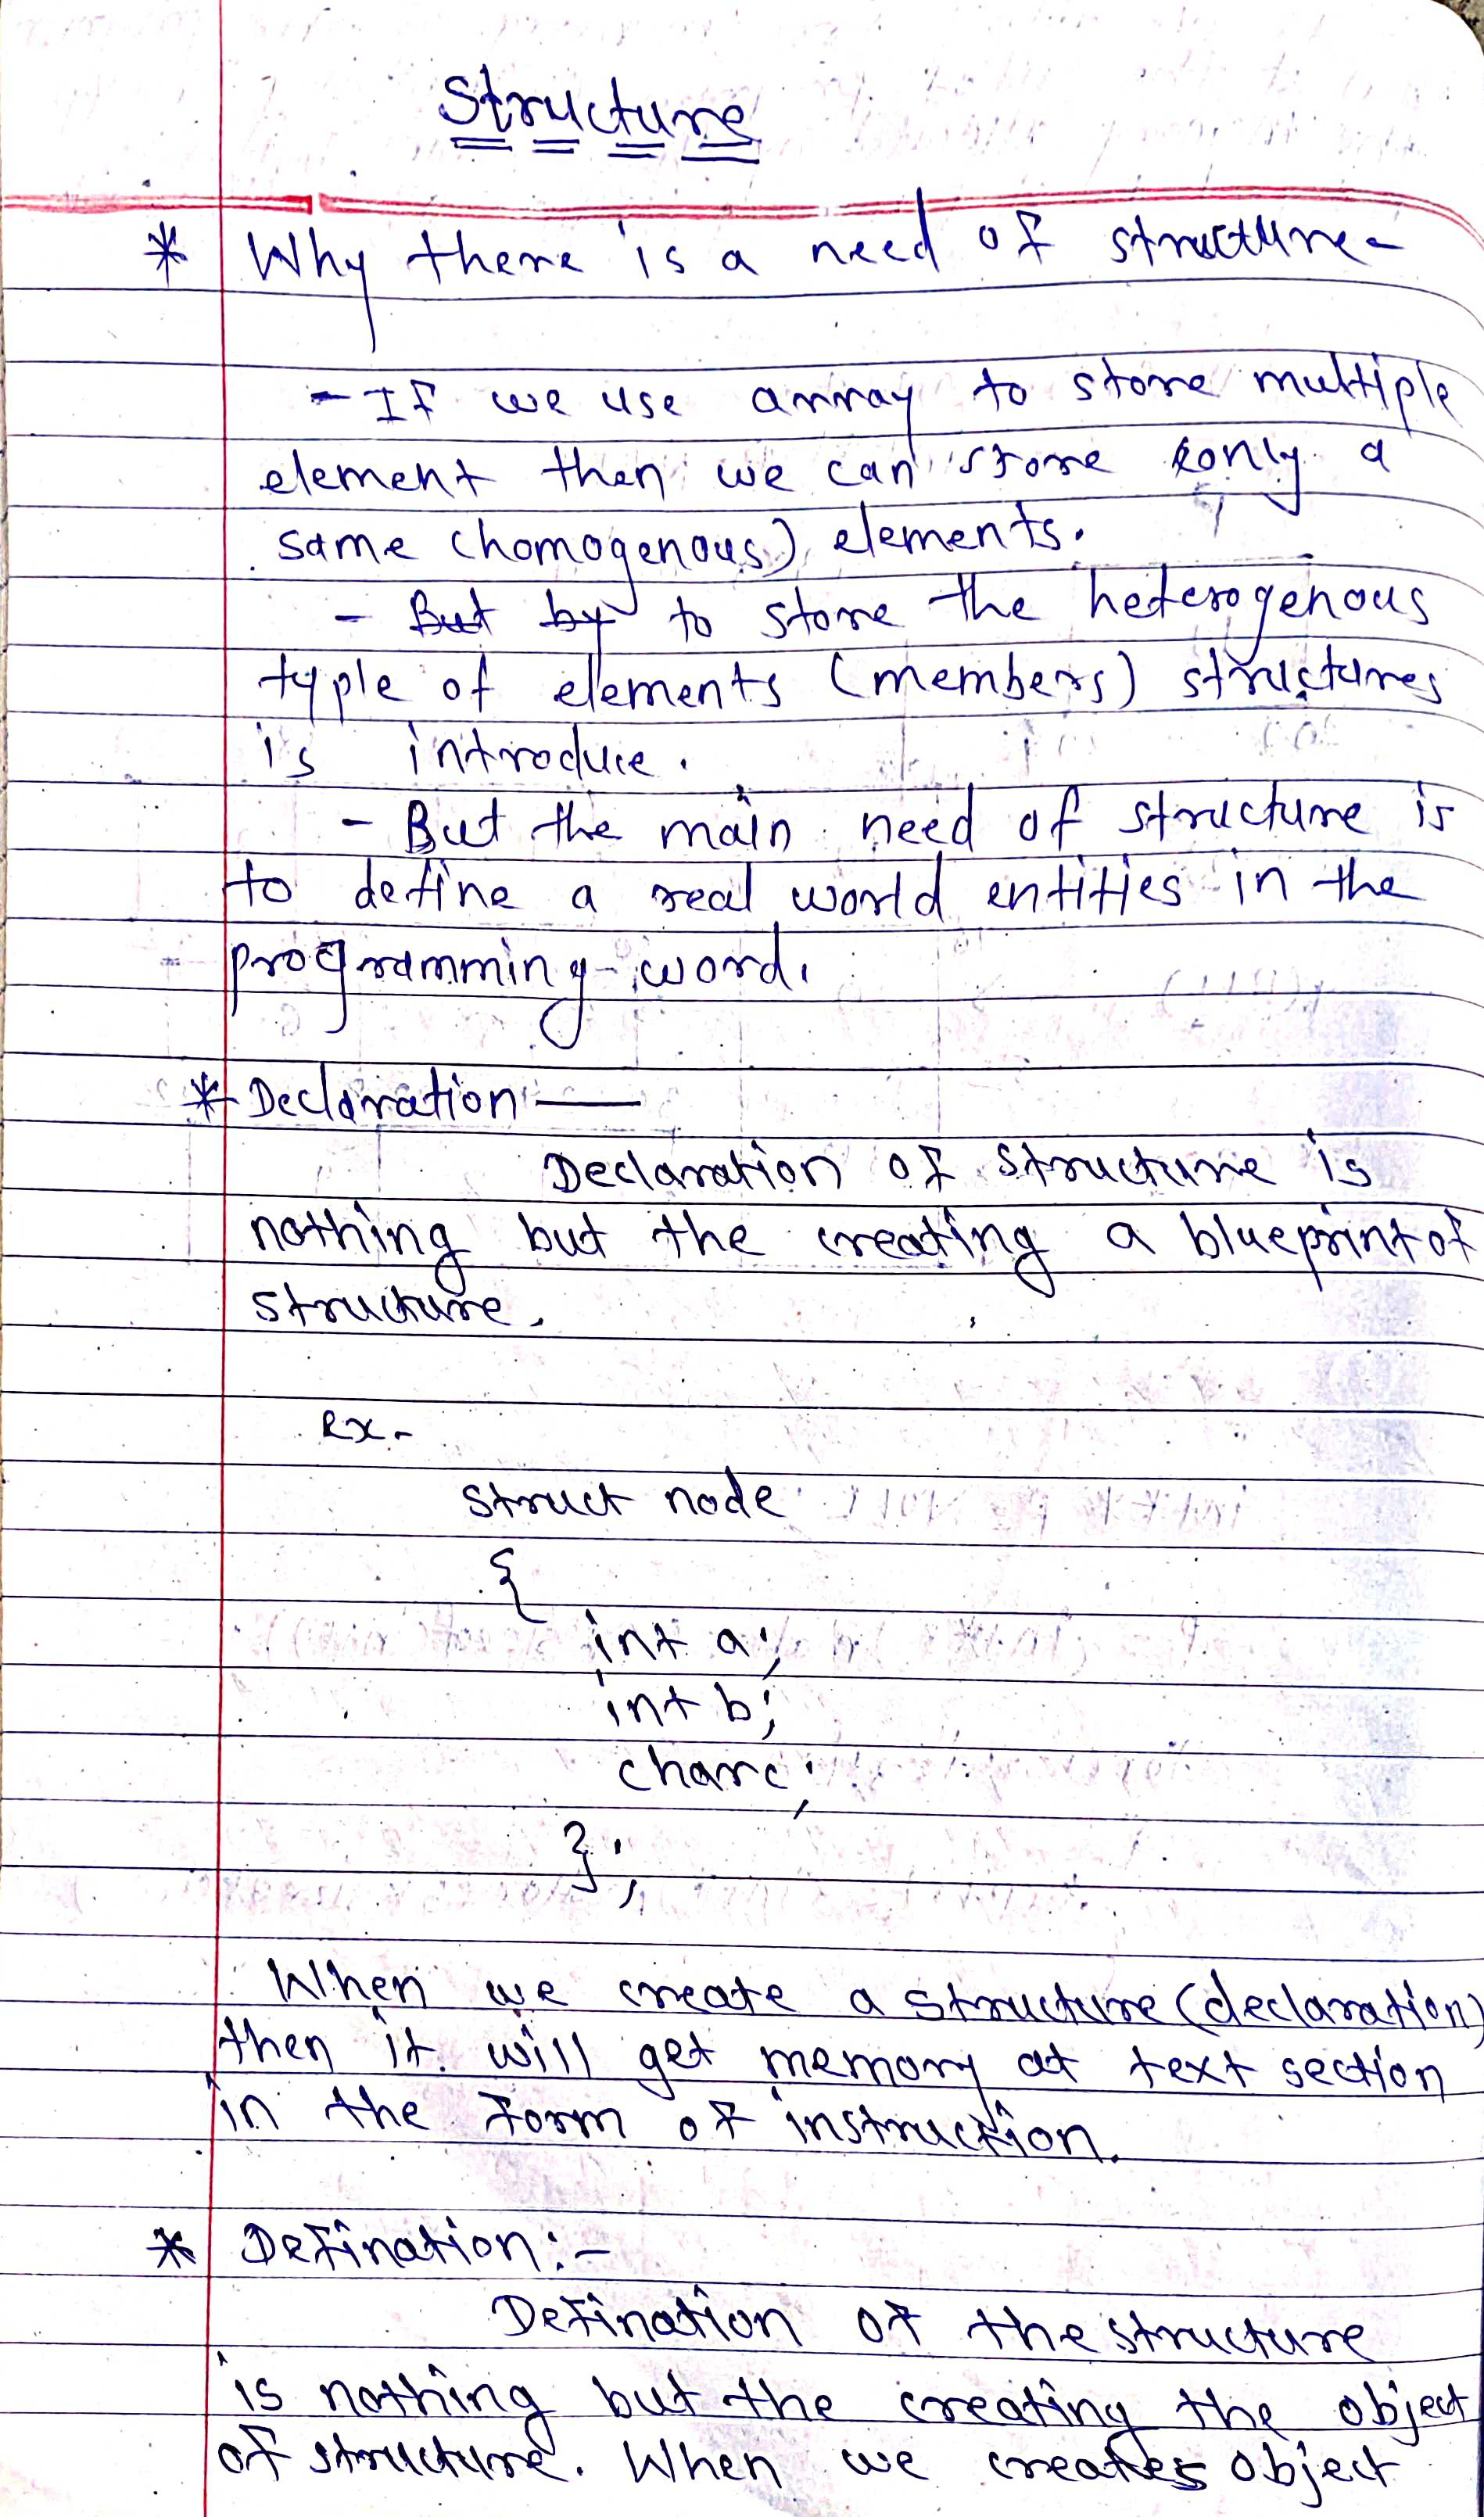 Structure
* Why there is a need of structure-
- If we use array to store multiple
element then we can store only a
same (homogenous) elements.
- But by to store the heterogenous
typle of elements (members) structures
is introduce.
- But the main need of structure is
to define a real world entities in the
programming word.
* Declaration :—
Declaration of structure is
nothing but the creating a blueprint of
structure.
Ex-
struct node
{
int a;
int b;
char c;
};
When we create a structure (declaration)
then it will get memory at text section
in the form of instruction.
* Defination:-
Defination of the structure
is nothing but the creating the object
of structure. When we creates object